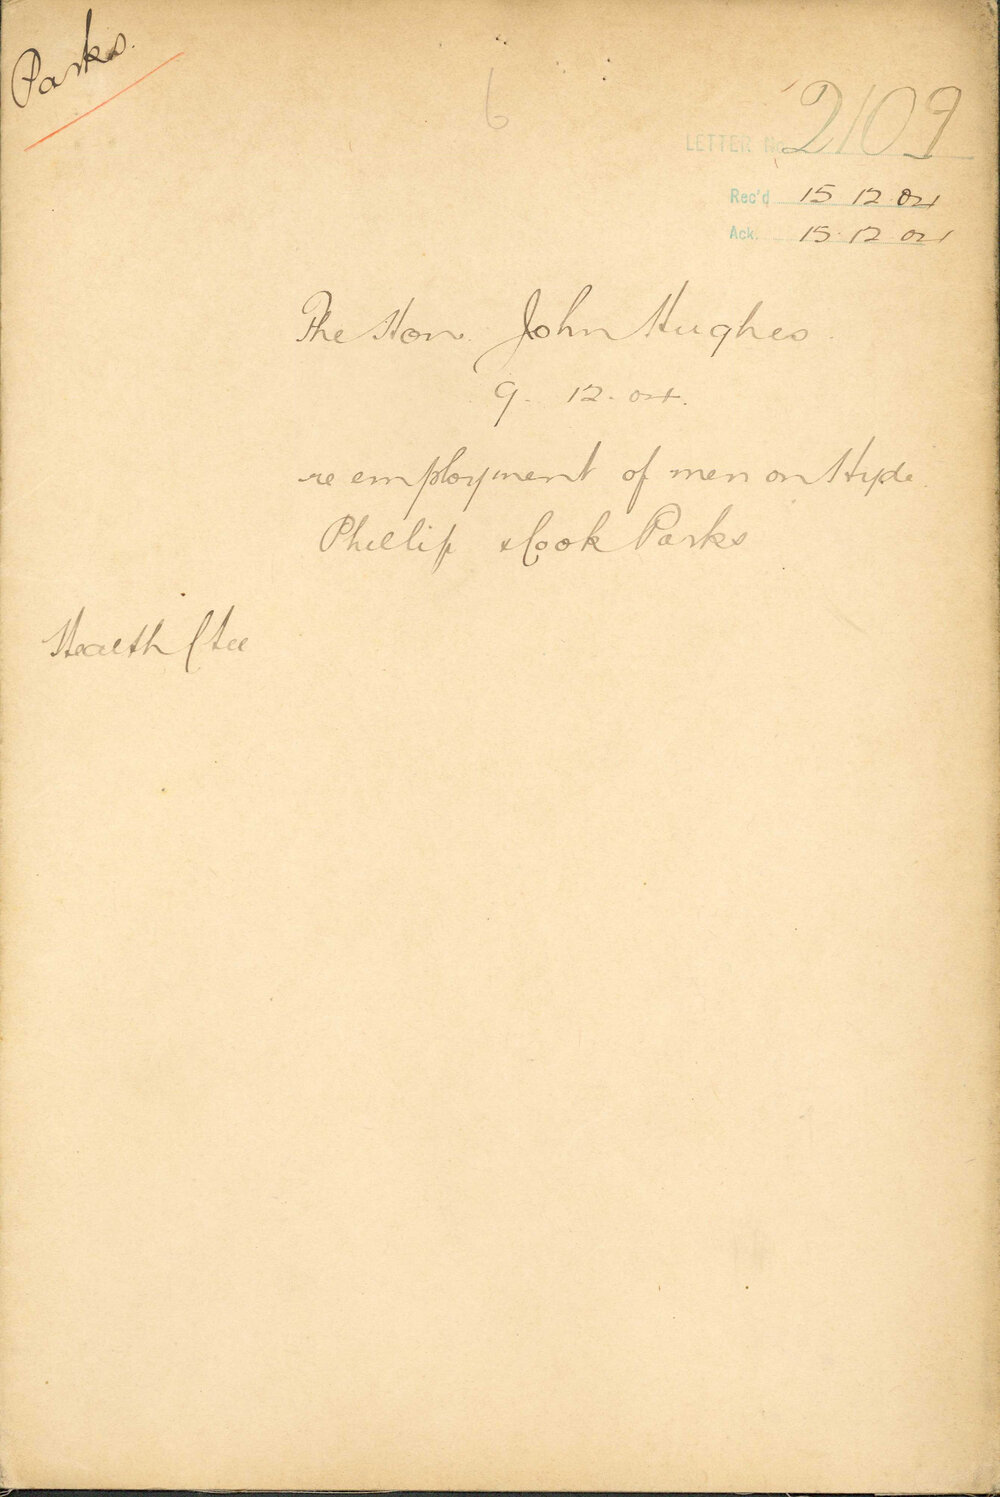 Parks.
6
LETTER No 2109
Rec'd 15 12 04
Ack. 15. 12 04
The Hon. John Hughes.
9. 12. 04.
re employment of men on Hyde
Phillip & Cook Parks
Health Ctee